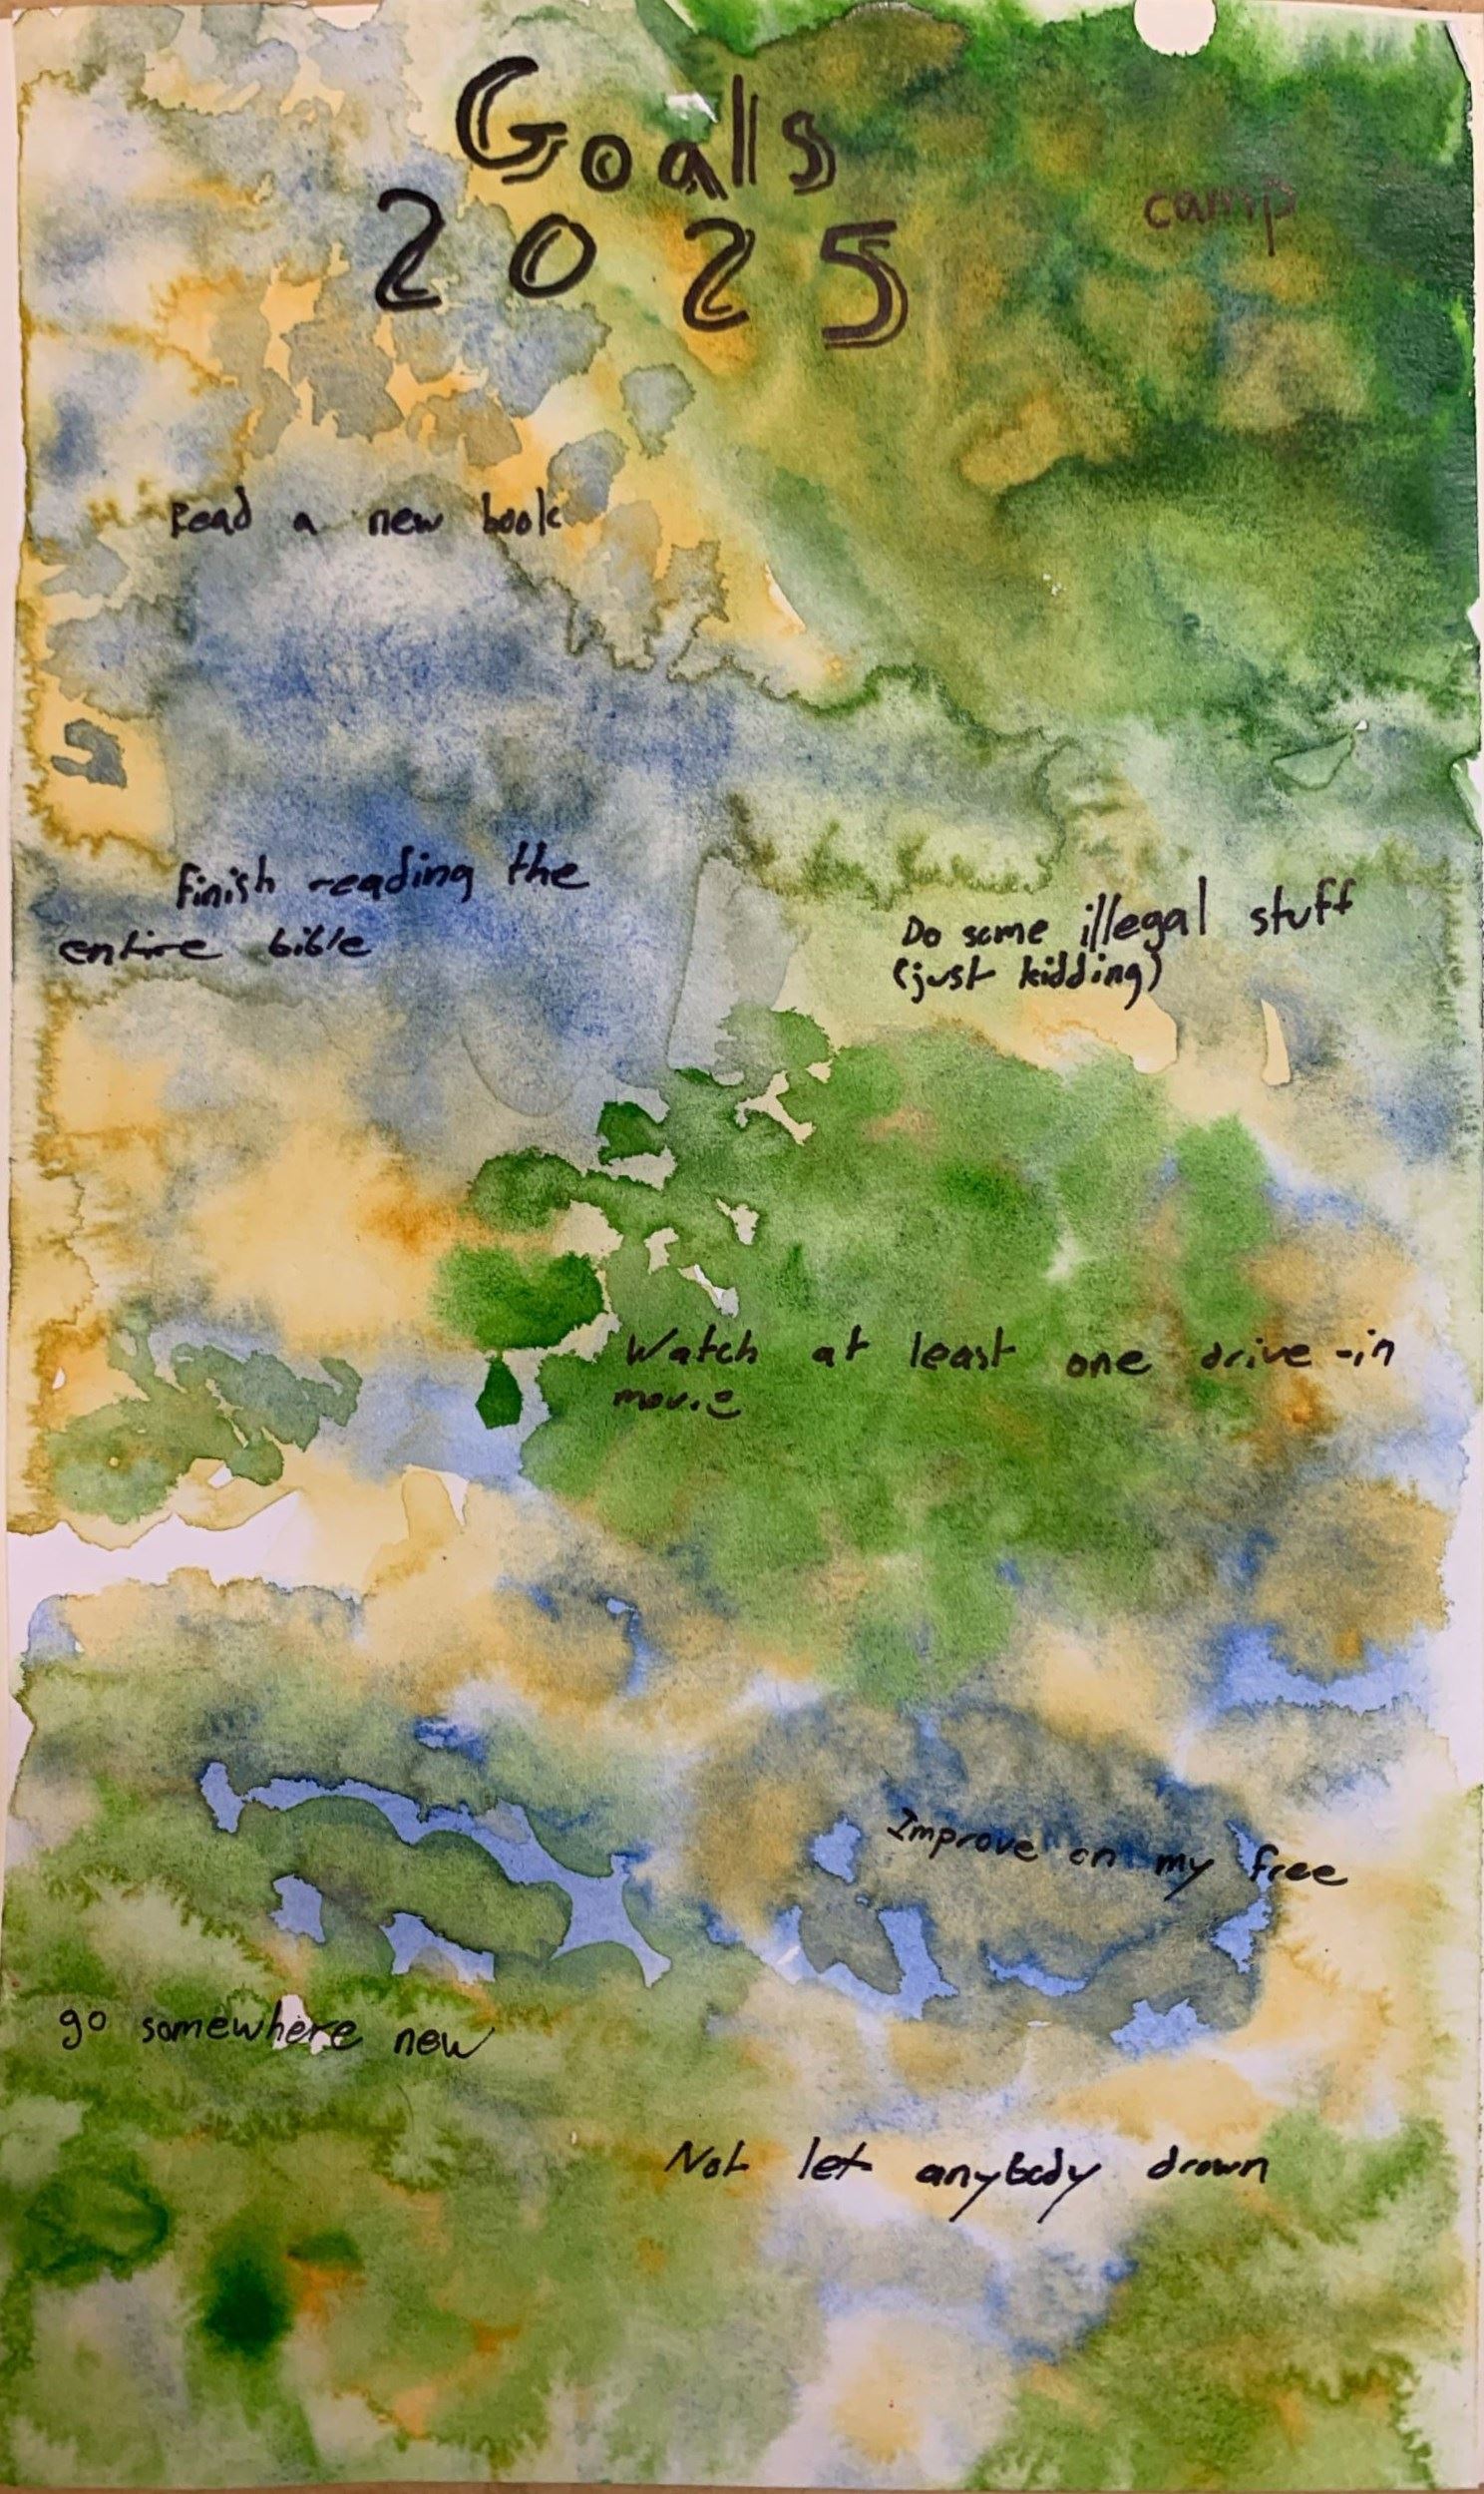 Goals
2025
camp
Read a new book
Finish reading the
entire bible
Do some illegal stuff
(just kidding)
Watch at least one drive-in
movie
Improve on my free
go somewhere new
Not let anybody drown